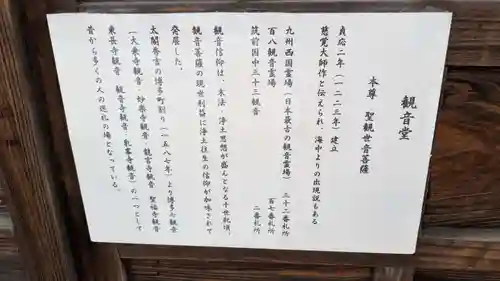 観音堂
本尊 聖観世音菩薩
貞応二年(一二二三年)建立
慈覚大師作と伝えられ、海中よりの出現説もある
九州西国霊場(日本最古の観音霊場) 三十二番札所
百八観音霊場 百七番札所
筑前国中三十三観音 二番札所
観音信仰は、末法・浄土思想が盛んとなる十世紀頃、
観音菩薩の現世利益に浄土往生の信仰が加味されて
発展した。
太閤秀吉の博多町割り(一五八七年)より博多七観音
(大乗寺観音 妙楽寺観音 龍宮寺観音 聖福寺観音
東長寺観音 観音寺観音 乳峯寺観音)の一つとして
昔から多くの人の巡礼の場となっている。